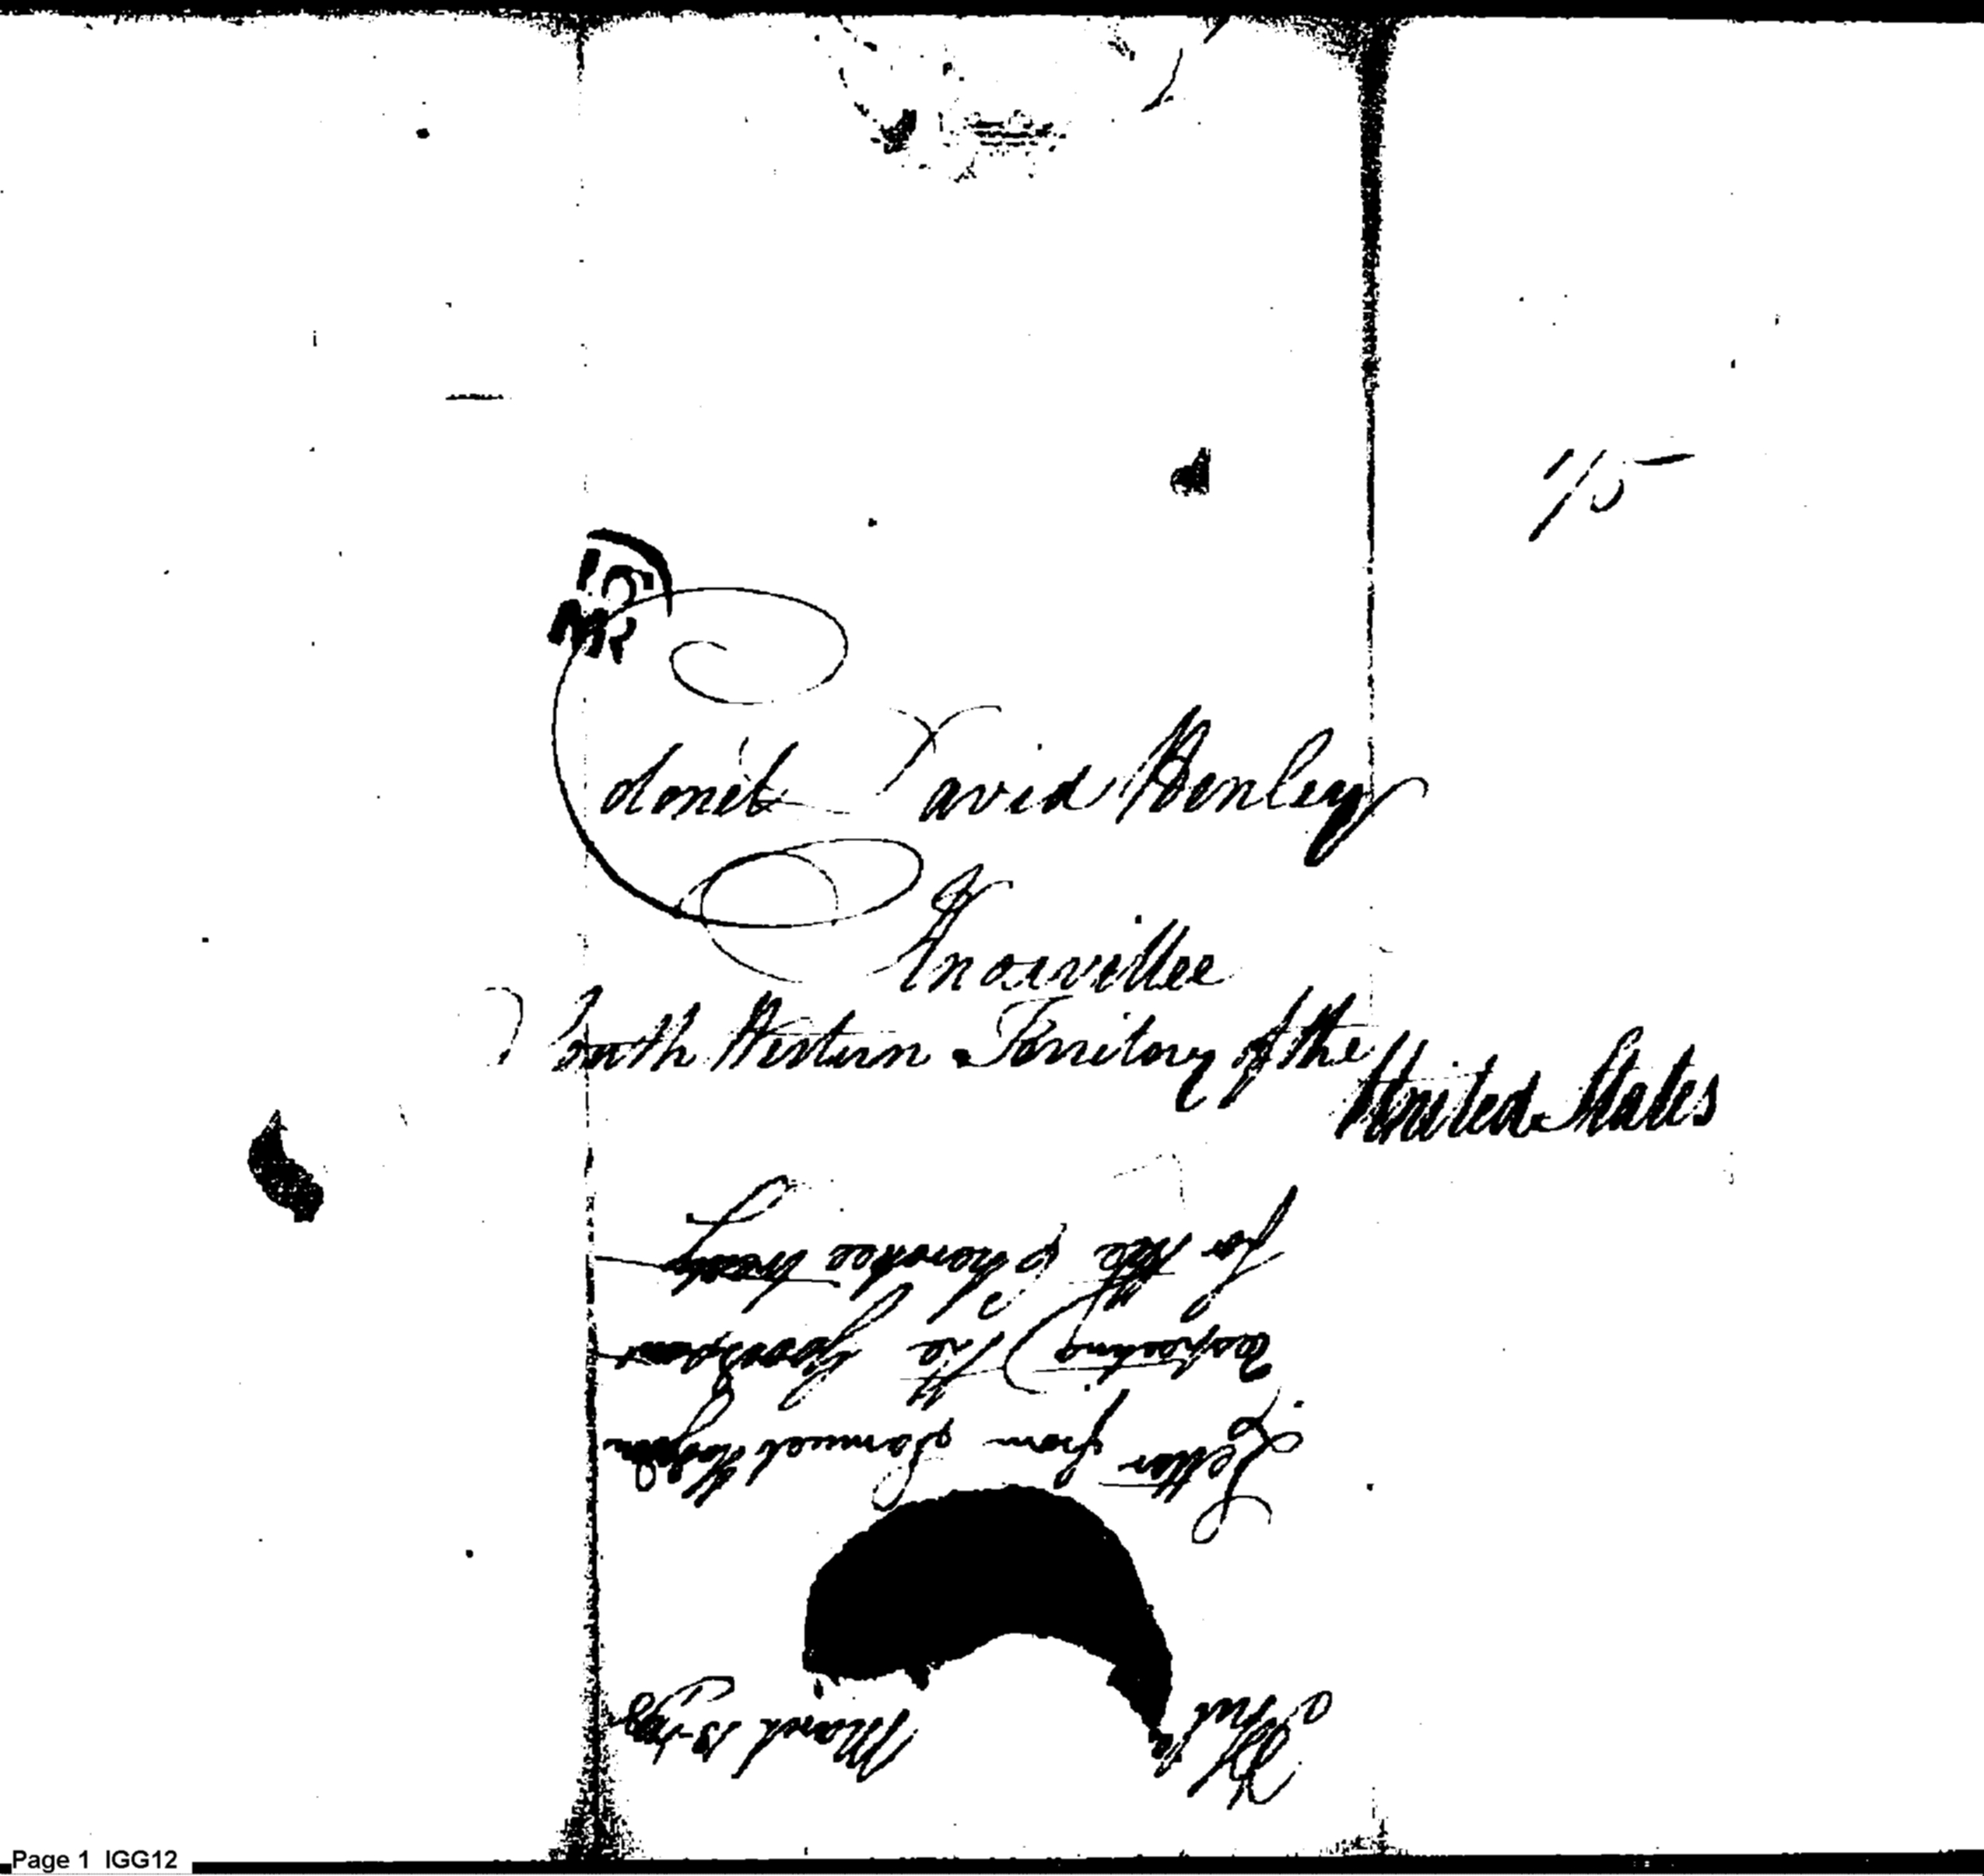 1/5
15
MR
Colonel David Henley
Knoxville
South Western Territory of the
United States
Letter from Samuel Hodgdon
respecting the
for the
Philad March 13 1795
Page 1 IGG12